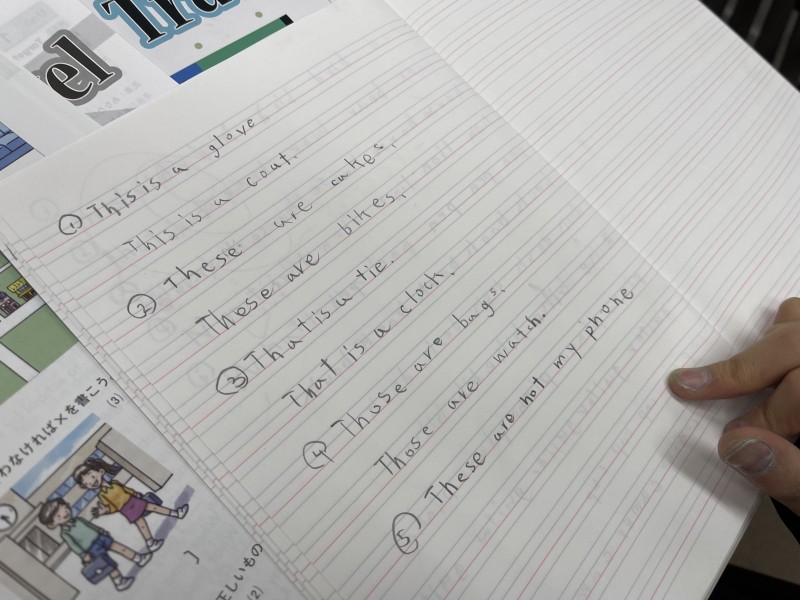 el
Tra
① This is a glove
This is a coat.
② These are cakes.
These are bikes.
③ That is a tie.
That is a clock.
④ Those are bags.
Those are watch.
⑤ These are not my phone
わなければ×を書こう
(3)
]
正しいもの
(2)